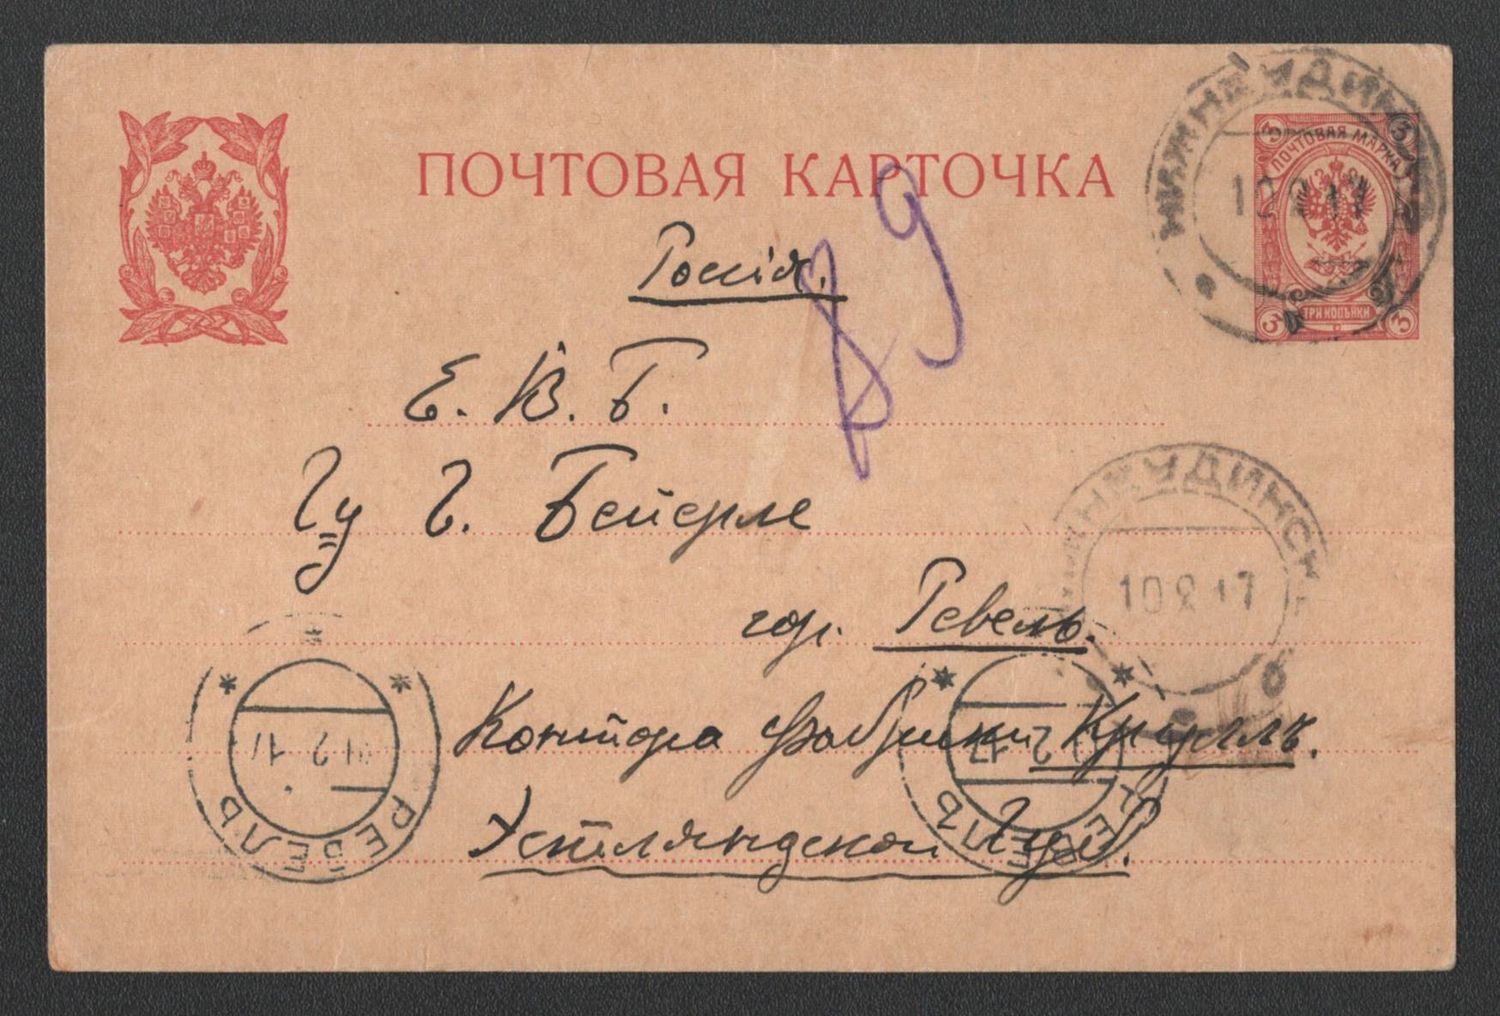 ПОЧТОВАЯ КАРТОЧКА
ПОЧТОВАЯ МАРКА
3 3
ТРИ КОПѢЙКИ
3 3
НИЖНЕУДИНСК
10 2 17
Россія.
89
Е. В. Б.
Гу Г. Бейерле
гор. Ревель.
НИЖНЕУДИНСК
10 2 17
б
Контора Фабрики Крулль.
Эстляндской Губ.
РЕВЕЛЬ
2 17
РЕВЕЛЬ
2 17